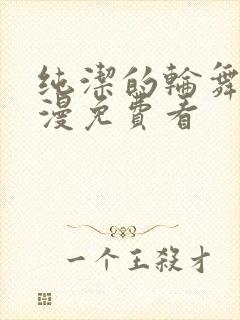 纯潔的輪舞
漫免費看
一个王殺才